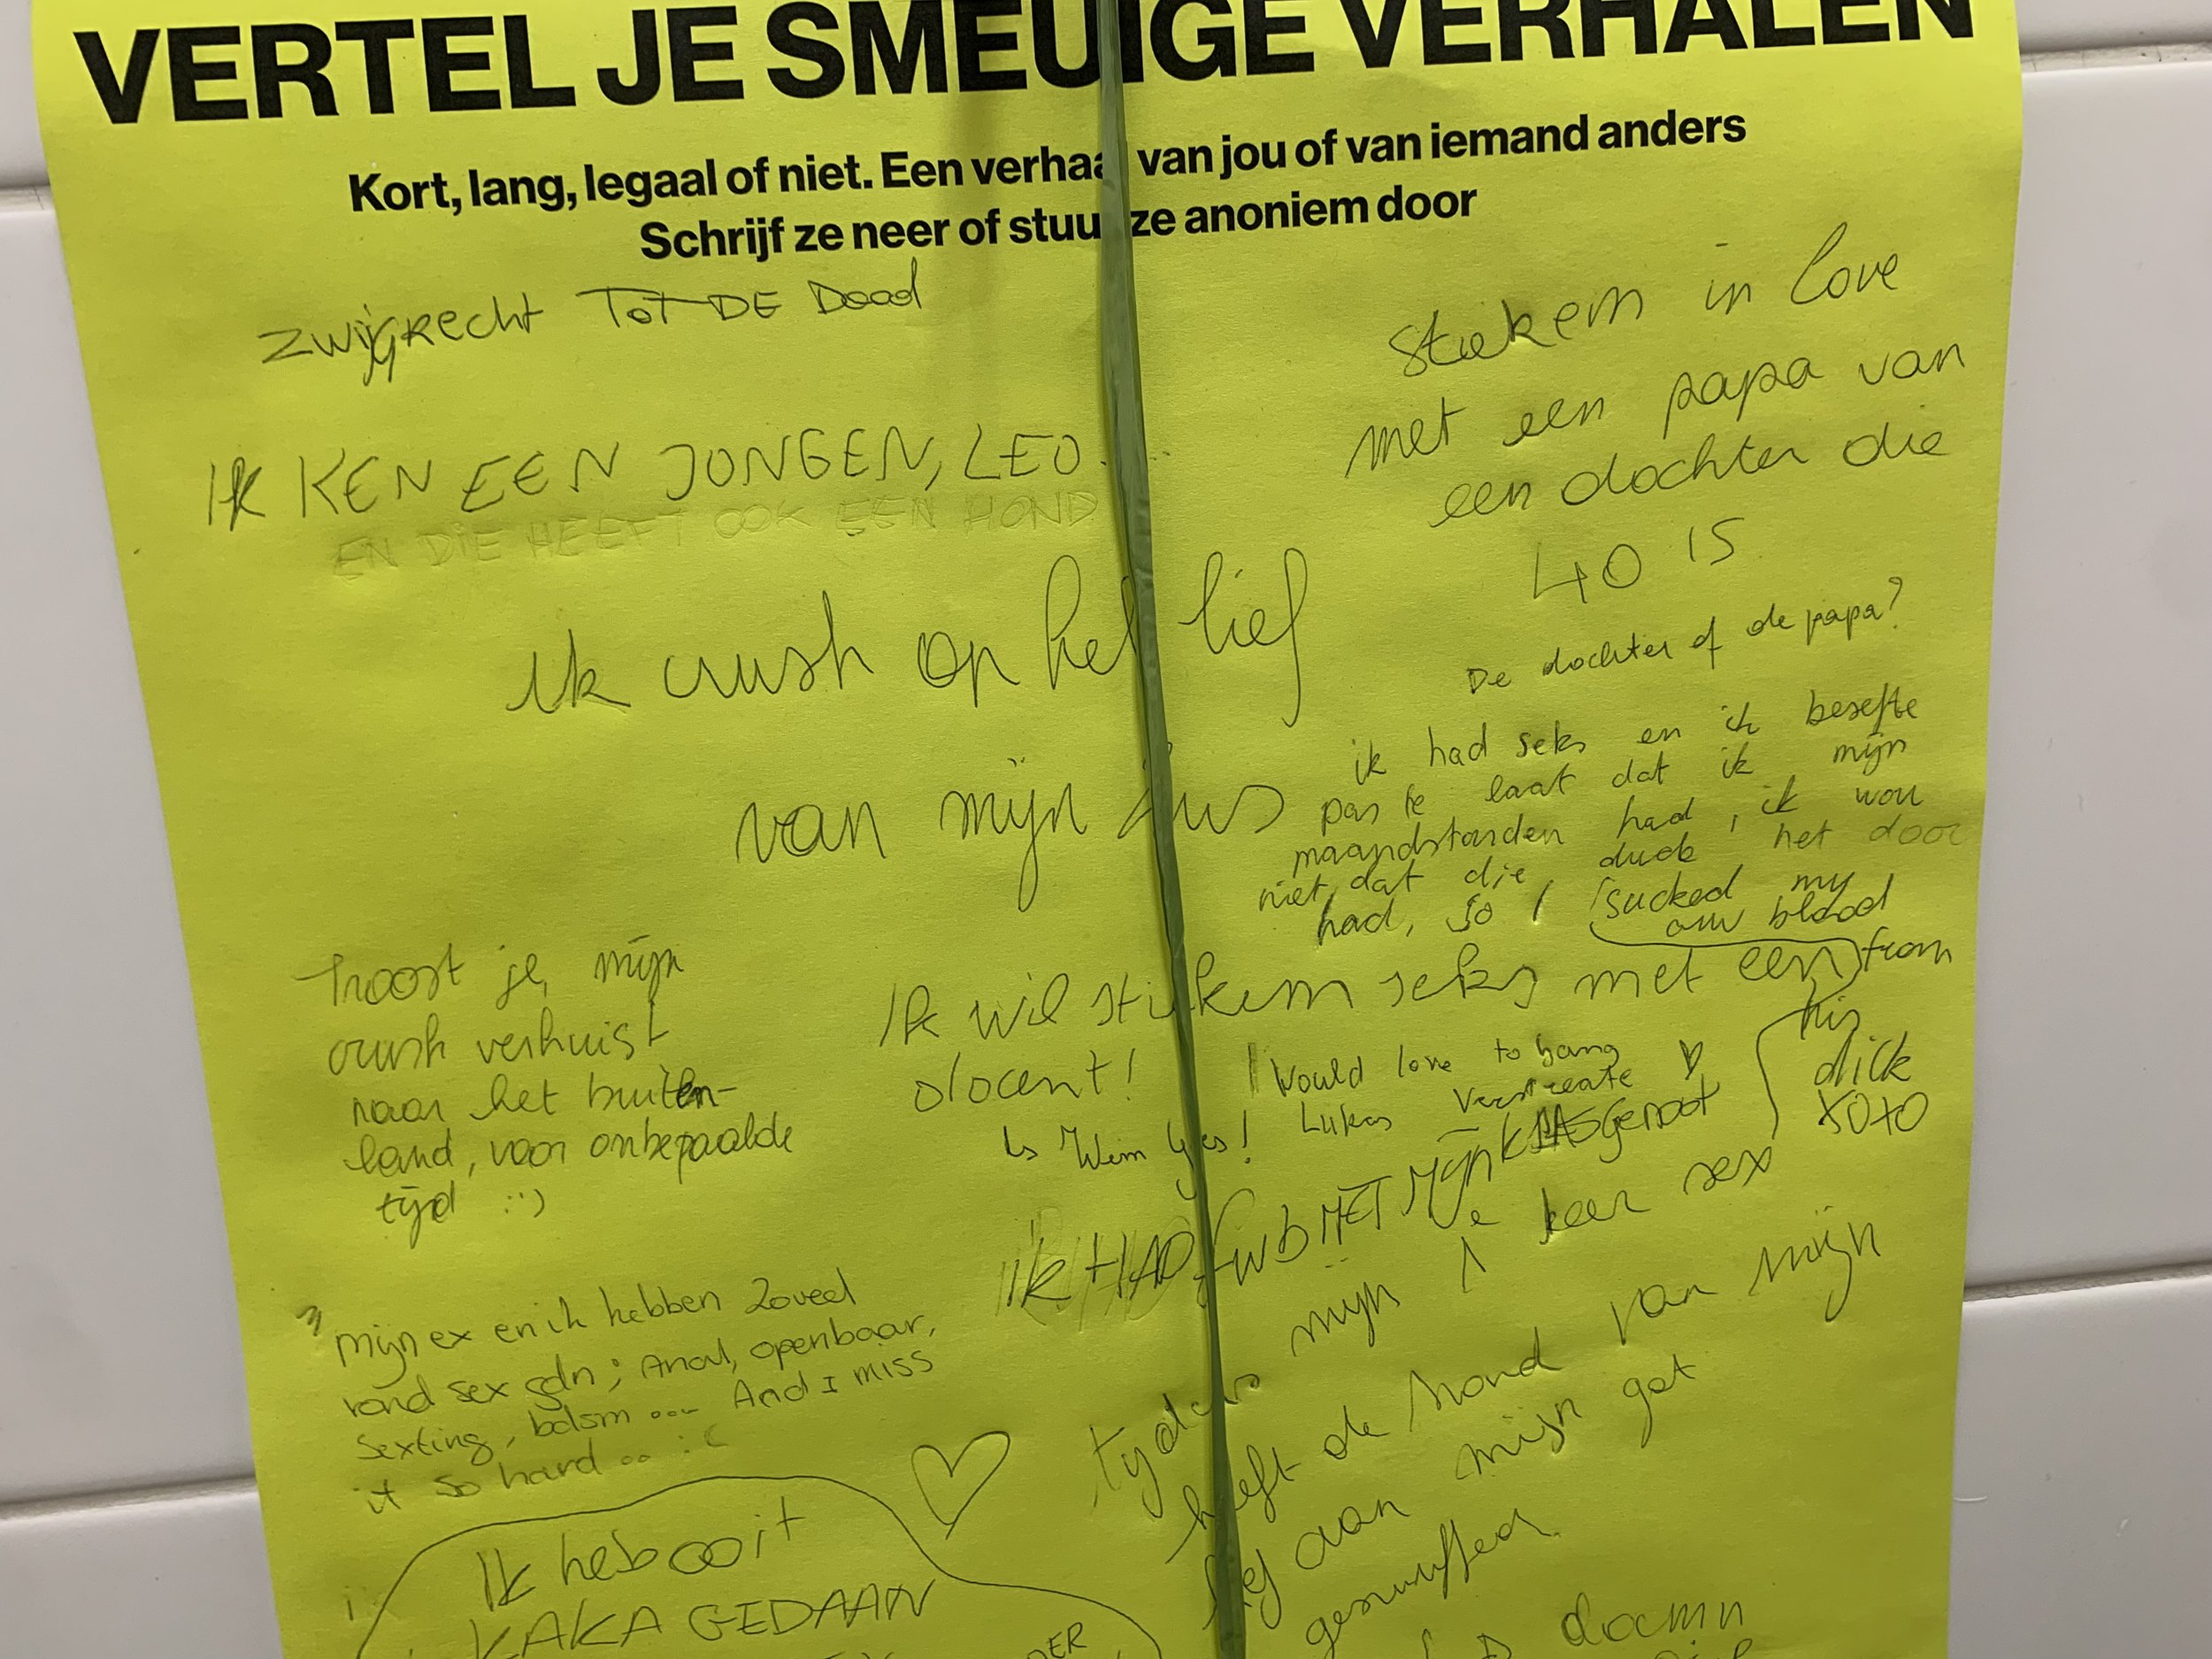 VERTEL JE SMEUIGE VERHALEN
Kort, lang, legaal of niet. Een verhaa van jou of van iemand anders
Schrijf ze neer of stuu ze anoniem door
ZWIJGRECHT TOT DE Dood
Stiekem in love
met een papa van
een dochter die
40 is
De dochter of de papa?
IK KEN EEN JONGEN, LEO...
EN DIE HEEFT OOK EEN HOND
ik crush op het lief
van mijn zus
ik had seks en ik besefte
pas te laat dat ik mijn
maandstonden had, ik wou
niet dat die dude het door
had, so I sucked my
own blood
from
his
dick
xoxo
Troost je, mijn
crush verhuist
naar het buiten-
land, voor onbepaalde
tijd :')
Ik wil stiekem seks met een
docent!
↳ Wim yes!
I Would love to bang
Lukas ♡
ik HAD FWB MET MijN KLASGENOOT
Mijn ex en ik hebben zoveel
rond sex gdn; Anal, openbaar,
Sexting, bdsm ... And I miss
it so hard .. :(
tijdens mijn 1e keer sex
heeft de hond van mijn
lief aan mijn gat
gesnuffeld
↳ damn
Ik heb ooit
KAKA GEDAAN
DER